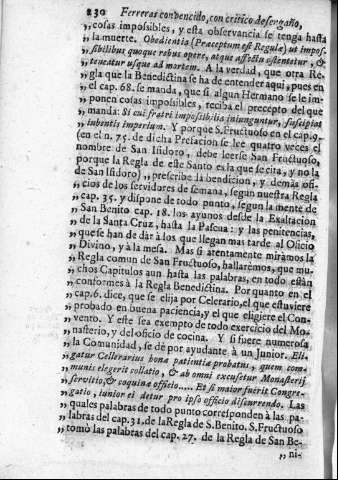 230 Ferreras convencido, con critico desengaño,
„ cosas impossibles, y esta observancia se tenga hasta
„ la muerte. Obedientia (Præceptum est Regulæ) ut impos-
„ sibilibus quoque rebus opere, atque affectu ostentatur, &
„ teneatur usque ad mortem. A la verdad, que otra Re-
„ gla que la Benedictina se ha de entender aqui, pues en
„ el cap. 68. se manda, que si algun Hermano se le im-
„ ponen cosas impossibles, reciba el precepto del que
„ manda: Si cui fratri impossibilia iniunguntur, suscipiat
„ iubentis imperium. Y porque S. Fructuoso en el cap. 9.
„ (en el n. 75. de dicha Prefacion se lee quatro veces el
„ nombre de San Isidoro, debe leerse San Fructuoso,
„ porque la Regla de este Santo es la que se cita, y no la
„ de San Isidoro) prescribe la bendicion, y demás ofi-
„ cios de los servidores de semana, segun nuestra Regla
„ cap. 35. y dispone de todo punto, segun la mente de
„ San Benito cap. 18. los ayunos desde la Exaltacion
„ de la Santa Cruz, hasta la Pasqua: y las penitencias,
„ que se han de dár à los que llegan mas tarde al Oficio
„ Divino, y à la mesa. Mas si atentamente miramos la
„ Regla comun de San Fructuoso, hallarèmos, que mu-
„ chos Capitulos aun hasta las palabras, en todo están
„ conformes à la Regla Benedictina. Por quanto en el
„ cap. 6. dice, que se elija por Celerario, el que estuviere
„ probado en buena paciencia, y el que eligiere el Con-
„ vento. Y este sea exempto de todo exercicio del Mo-
„ nasterio, y del oficio de cocina. Y si fuere numerosa
„ la Comunidad, se dè por ayudante à un Junior. Eli-
„ gatur Cellerarius bona patientia probatus, quem com-
„ munis elegerit collatio, & ab omni excusetur Monasterij
„ servitio, & coquinæ officio..... Et si maior fuerit Congre-
„ gatio, iunior ei detur pro ipso officio discurrendo. Las
„ quales palabras de todo punto corresponden à las pa-
„ labras del cap. 31. de la Regla de S. Benito. S. Fructuoso
„ tomò las palabras del cap. 27. de la Regla de San Be-
„ ni-